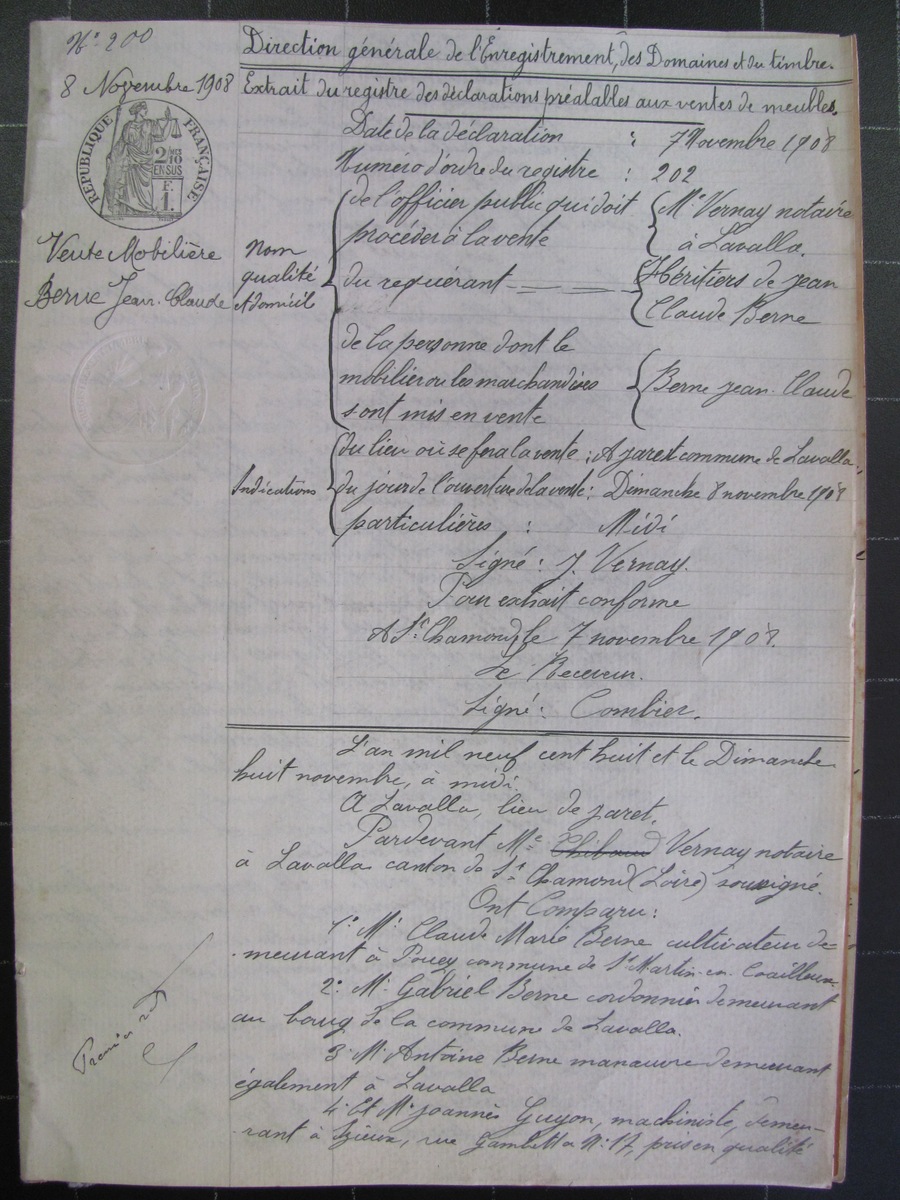 N° 200
8 Novembre 1908
RÉPUBLIQUE FRANÇAISE
2/MES
10
EN SUS
F.
1.
Vente Mobilière
Berne Jean-Claude
Direction générale de l'Enregistrement, des Domaines et du timbre.
Extrait du registre des déclarations préalables aux ventes de meubles.
Date de la déclaration : 7 Novembre 1908
Numéro d'ordre du registre : 202
Nom
qualité
et domicil
de l'officier public qui doit
procéder à la vente
Me Vernay notaire
à Lavalla.
du requérant
Héritiers de jean
Claude Berne
de la personne dont le
mobilier ou les marchandises
sont mis en vente
Berne jean-Claude
Indications
du lieu où se fera la vente : A jaret commune de Lavalla
du jour de l'ouverture de la vente : Dimanche 8 novembre 1908
particulières : Midi
Signé : J. Vernay.
Pour extrait conforme
A St Chamond, le 7 novembre 1908.
Le Receveur.
Signé : Combier.
L'an mil neuf cent huit et le Dimanche
huit novembre, à midi.
A Lavalla, lieu de jaret.
Pardevant Me Thibaud Vernay notaire
à Lavalla canton de St Chamond (Loire) soussigné.
Ont Comparu :
1° Mr Claude Marie Berne cultivateur de=
meurant à commune de St Martin-en-Coailleux.
2° Mr Gabriel Berne cordonnier demeurant
au bourg de la commune de Lavalla.
3° Mr Antoine Berne manœuvre demeurant
également à Lavalla
4° Et Mr joannès Guyon, machiniste, demeu-
rant à Izieux, rue Gambetta N° 17, pris en qualité
Premier rôle